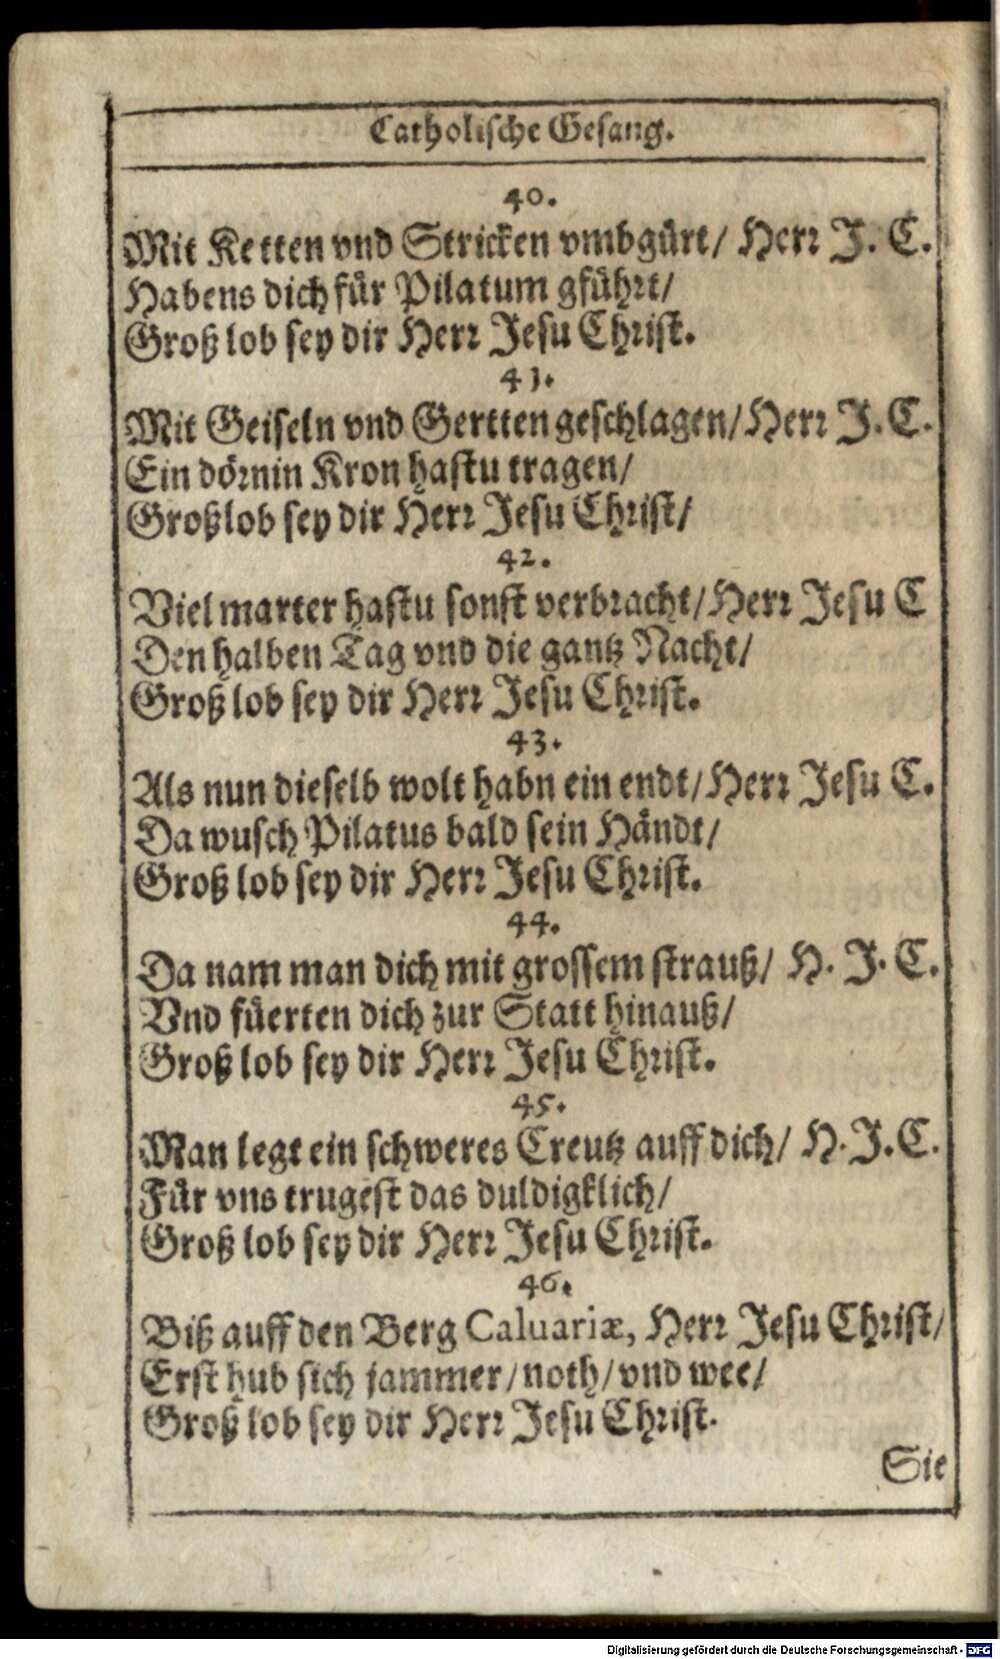 Catholische Gesang.
40.
Mit Ketten vnd Stricken vmbgürt/ Herr J. C.
Habens dich für Pilatum gführt/
Groß lob sey dir Herr Jesu Christ.
41.
Mit Geiseln vnd Gertten geschlagen/ Herr J. C.
Ein dörnin Kron hastu tragen/
Groß lob sey dir Herr Jesu Christ/
42.
Viel marter hastu sonst verbracht/ Herr Jesu C
Den halben Tag vnd die gantz Nacht/
Groß lob sey dir Herr Jesu Christ.
43.
Als nun dieselb wolt habn ein endt/ Herr Jesu C.
Da wusch Pilatus bald sein Händt/
Groß lob sey dir Herr Jesu Christ.
44.
Da nam man dich mit grossem strauß/ H. J. C.
Vnd füerten dich zur Statt hinauß/
Groß lob sey dir Herr Jesu Christ.
45.
Man legt ein schweres Creutz auff dich/ H. J. C.
Für vns trugest das duldigklich/
Groß lob sey dir Herr Jesu Christ.
46.
Biß auff den Berg Caluariæ, Herr Jesu Christ/
Erst hub sich jammer/ noth/ vnd wee/
Groß lob sey dir Herr Jesu Christ.
Sie
Digitalisierung gefördert durch die Deutsche Forschungsgemeinschaft - DFG